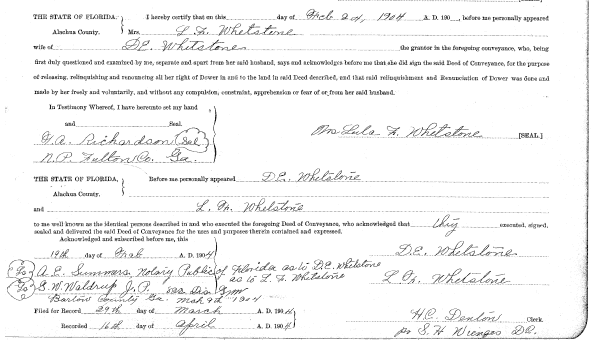 THE STATE OF FLORIDA, } I hereby certify that on this day of Feb 24, 1904 A. D. 190 , before me personally appeared
Alachua County. Mrs. L. F. Whetstone
wife of D.E. Whetstone the grantor in the foregoing conveyance, who, being
first duly questioned and examined by me, separate and apart from her said husband, says and acknowledges before me that she did sign the said Deed of Conveyance, for the purpose
of releasing, relinquishing and renouncing all her right of Dower in and to the land in said Deed described, and that said relinquishment and Renunciation of Dower was done and
made by her freely and voluntarily, and without any compulsion, constraint, apprehension or fear of or from her said husband.
In Testimony Whereof, I have hereunto set my hand
and Seal.
Richardson Seal Mrs Lula F. Whetstone [SEAL]
N.P. Fulton Co. Ga.
THE STATE OF FLORIDA, } Before me personally appeared D.E. Whetstone
Alachua County.
and L. F. Whetstone
to me well known as the identical persons described in and who executed the foregoing Deed of Conveyance, who acknowledged that they executed, signed,
sealed and delivered the said Deed of Conveyance for the uses and purposes therein contained and expressed.
Acknowledged and subscribed before me, this
19th day of Feb A. D. 1904 D.E. Whetstone
A. E. Summers, Notary Public of Florida as to D.E. Whetstone
S. W. Waldrup J. P. as to L. F. Whetstone L. F. Whetstone
Bartow County Ga. 1904
Filed for Record 29th day of March A. D. 1904 H.C. Denton Clerk.
Recorded 16th day of April A. D. 1904 per S. H. D.C.